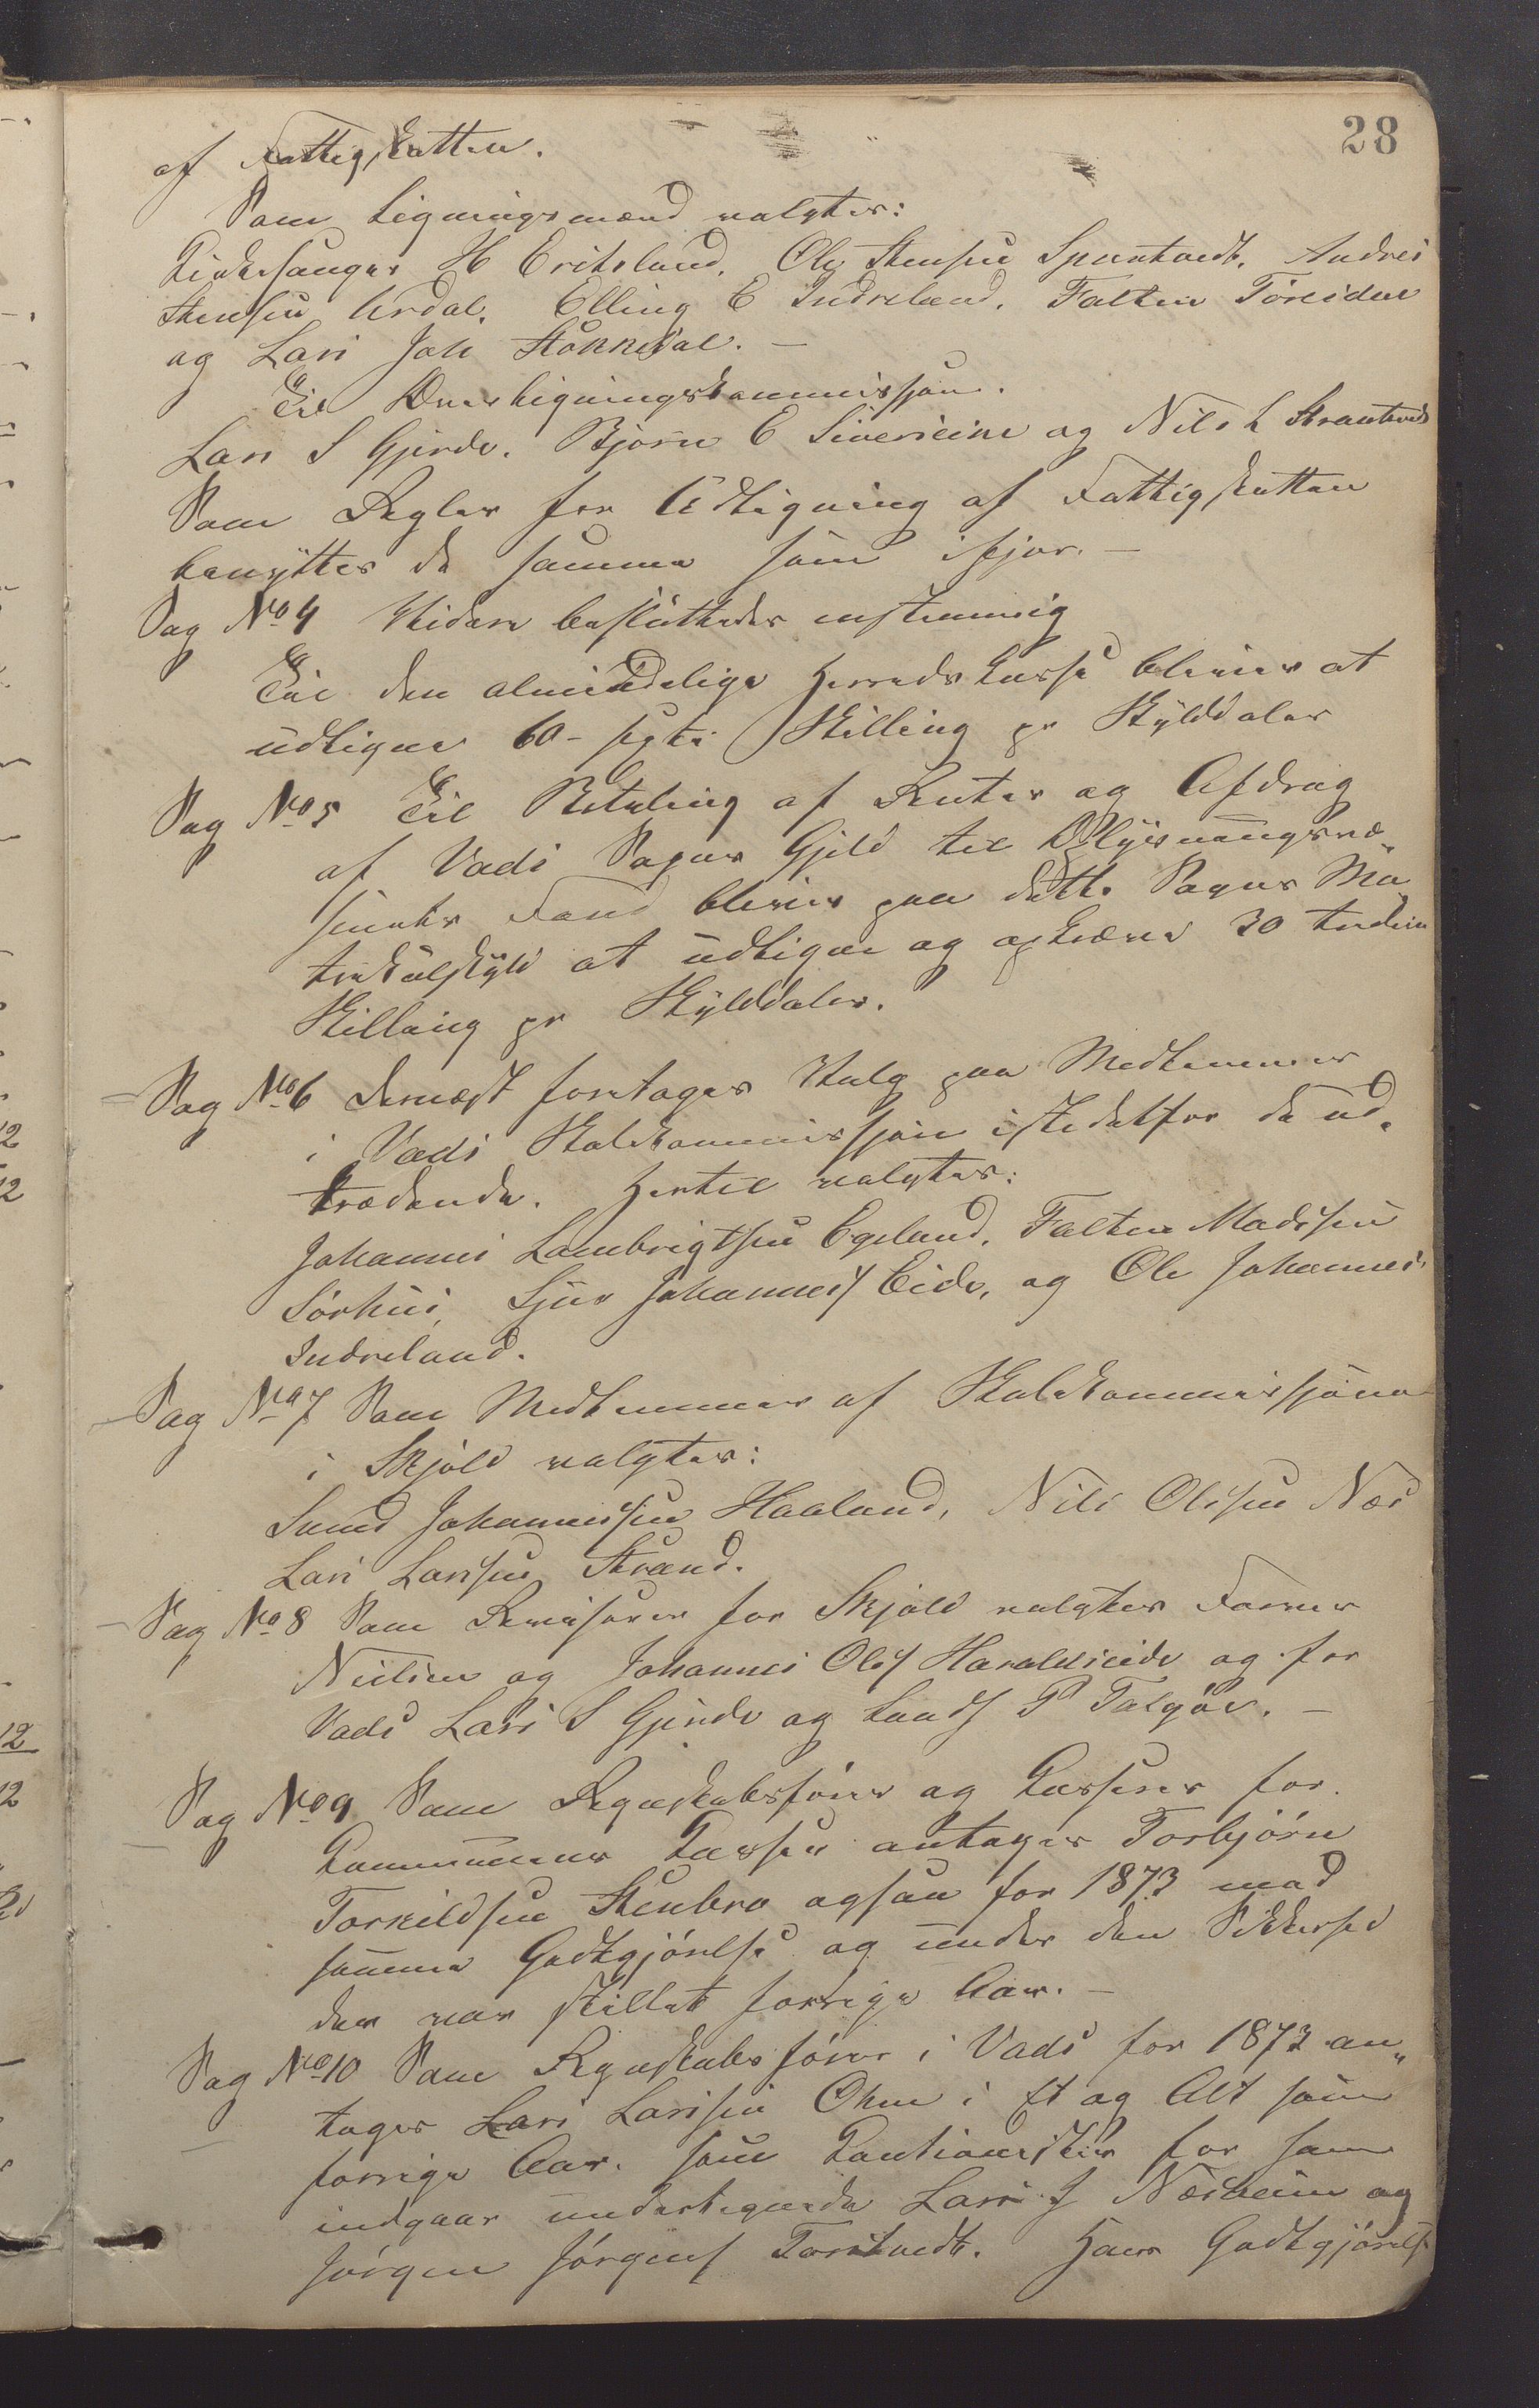 28
af Fattigskatten.
Som Ligningsmænd valgtes:
Kirkesanger H Eritsland, Ole Stensen Spantvedt, Andres
Stensen Urdal, Elling E Indreland, Falten Töreiden
og Lars Joh Stokkedal. –
Til Overligningskommissjon.
Lars S Gjerde. Björn E Sivereine og Nils L Strantved
Som Regler for Udligning af Fattigskatten
benyttes de samme som ifjor. –
Sag No 4 Videre besluttedes enstemmig
Til den almindelige Herredskasse bliver at
udligne 60 – sexti Skilling pr Skylddaler
Sag No 5 Til Betaling af Renter og Afdrag
af Vads Sogns Gjeld til Oplysningsvæ„
senets Fond bliver paa dette Sogns Ma„
trikulskyld at udligne og opkræve 30 tredive
Skilling pr Skylddaler.
– Sag No 6 Dernæst foretages Valg paa Medlemmer
i Vads Skolekommissjon istedetfor de ud„
trædende. Hertil valgtes:
Johannes Lambrigtsen Egeland, Falten Madssen
Sörhus, Sjur Johannes Eide, og Ole Johannes
Indreland.
– Sag No 7 Som Medlemmer af Skolekommissjonen
i Skjold valgtes:
Svend Johannessen Haaland, Nils Olssen Næs
Lars Larssen Strand.
– Sag No 8 Som Revisorer for Skjold valgtes
Nielsen og Johannes Ols Haraldseide og for
Vads Lars S Gjerde og Lands P Talgöe. –
Sag No 9 Som Regnskabsförer og Kasserer for
Kommunens Kasser antages Torbjörn
Torkildsen Stenbro ogsaa for 1873 mod
samme Godtgjörelse og under den Sikkerhed
der var stillet forrige Aar. –
Sag No 10 Som Regnskabsförer i Vads for 1873 an„
tages Lars Larssen Ohm i Et og Alt som
forrige Aar. Som Kautionister for ham
indgaar undertegnede Lars J Næsheim og
Jörgen Jörgens Torstvedt. Hans Godtgjörelse